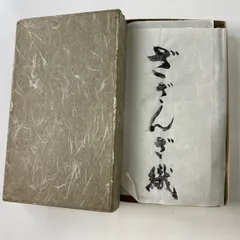 ざざんざ織